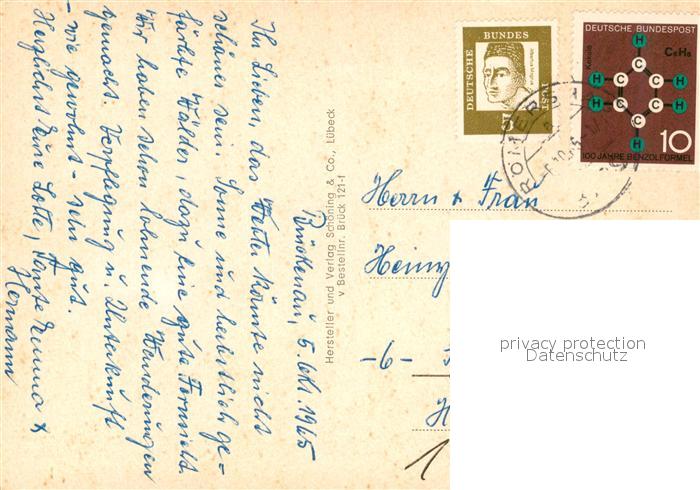 Brückenau, 5. Okt. 1965
Ihr Lieben, das Wetter könnte nicht
schöner sein. Sonne und herbstlich ge-
färbte Wälder, dazu eine gute Fernsicht.
Wir haben schon lohnende Wanderungen
gemacht. Verpflegung u. Unterkunft
- wie gewohnt - sehr gut.
Herzlichst Eure Lotte, Tante Emma &
Hermann
Hersteller und Verlag Schöning & Co., Lübeck
v Bestellnr. Brück 121-f
DEUTSCHE BUNDES POST
5
DEUTSCHE BUNDESPOST
Kekulé
C6H6
H
H C C H
H C C H
C
H
10
100 JAHRE BENZOLFORMEL
Herrn & Frau
Heinz
-6-
privacy protection
Datenschutz